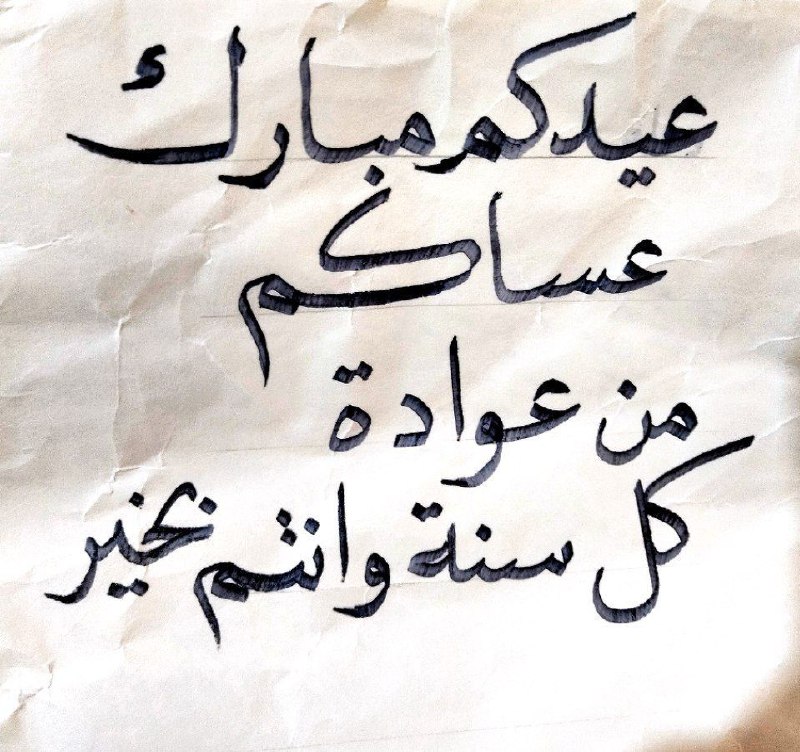 عيدكم مبارك
عساكم
من عوادة
كل سنة وانتم بخير